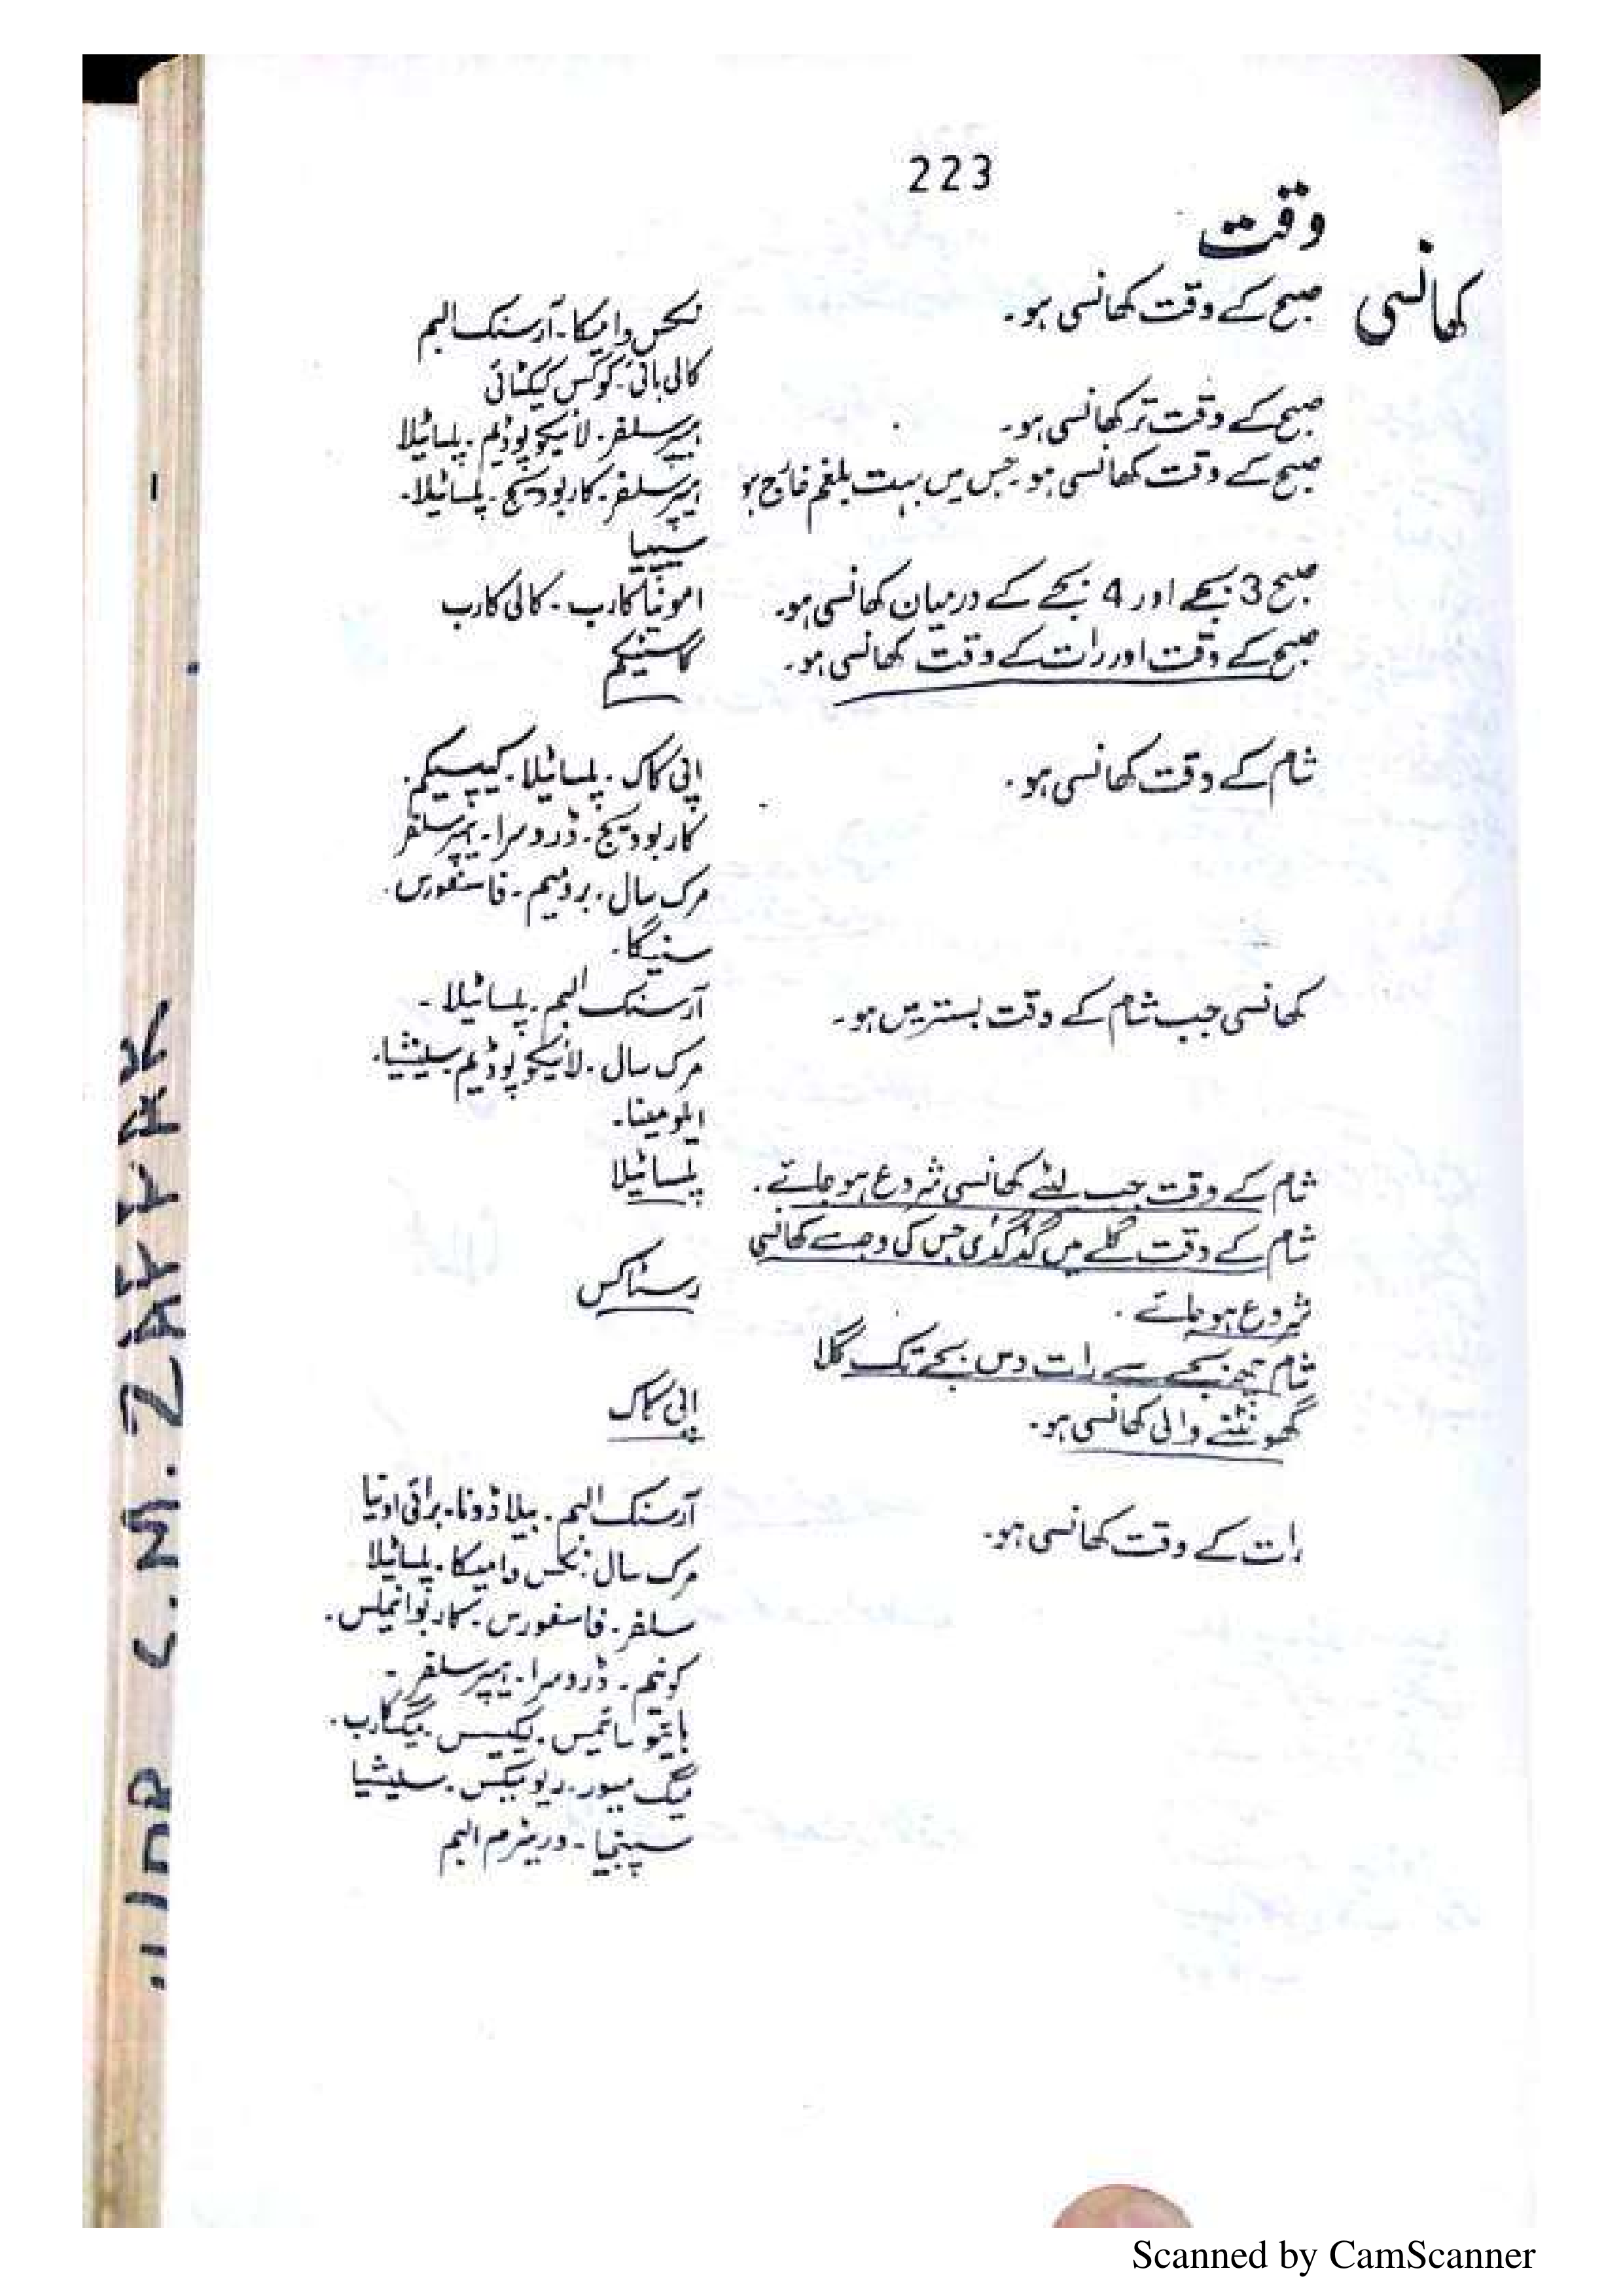 223
وقت
کھانسی
صبح کے وقت کھانسی ہو۔ نکس وامیکا۔ آرسنک البم
کالی بائی۔ کوکس کیکٹائی
صبح کے وقت تر کھانسی ہو۔ ہیپر سلفر۔ لائیکوپوڈیم۔ پلساٹیلا
صبح کے وقت کھانسی ہو۔ جس میں بہت بلغم خارج ہو ہیپر سلفر۔ کاربوویج۔ پلساٹیلا۔
سیپیا
صبح 3 بجے اور 4 بجے کے درمیان کھانسی ہو۔ امونیا کارب۔ کالی کارب
صبح کے وقت اور رات کے وقت کھانسی ہو۔ کاسٹیکم
شام کے وقت کھانسی ہو۔ اپی کاک۔ پلساٹیلا۔ کیپسیکم۔
کاربوویج۔ ڈروسرا۔ ہیپر سلفر
مرک سال۔ برومیم۔ فاسفورس۔
سنیگا۔
کھانسی جب شام کے وقت بستر میں ہو۔ آرسنک البم۔ پلساٹیلا۔
مرک سال۔ لائیکوپوڈیم۔ سلیشیا۔
ایلومینا۔
شام کے وقت جب لیٹے کھانسی شروع ہو جائے۔ پلساٹیلا
شام کے وقت گلے میں گدگدی جس کی وجہ سے کھانسی
شروع ہو جائے۔ رسٹاکس
شام چھ بجے سے رات دس بجے تک گلا
گھونٹنے والی کھانسی ہو۔ اپی کاک
رات کے وقت کھانسی ہو۔ آرسنک البم۔ بیلاڈونا۔ برائی اونیا
مرک سال۔ نکس وامیکا۔ پلساٹیلا
سلفر۔ فاسفورس۔ کاربوانیملس۔
کونیم۔ ڈروسرا۔ ہیپر سلفر۔
ہائیوسائمس۔ لیکیسس۔ میگ کارب۔
میگ میور۔ ریومیکس۔ سلیشیا
سپنجیا۔ وریٹرم البم
C.M. ZAFFAR
Scanned by CamScanner